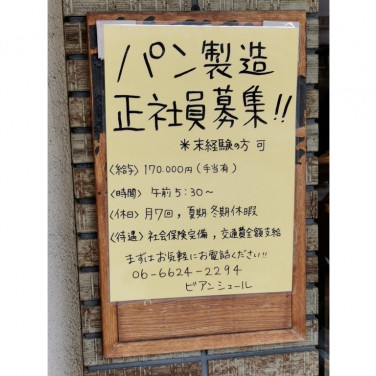 パン製造
正社員募集!!
*未経験の方 可
〈給与〉170.000円(手当有)
〈時間〉午前5:30〜
〈休日〉月7回,夏期 冬期休暇
〈待遇〉社会保険完備,交通費全額支給
まずはお気軽にお電話ください!!
06-6624-2294
ビアンシュール